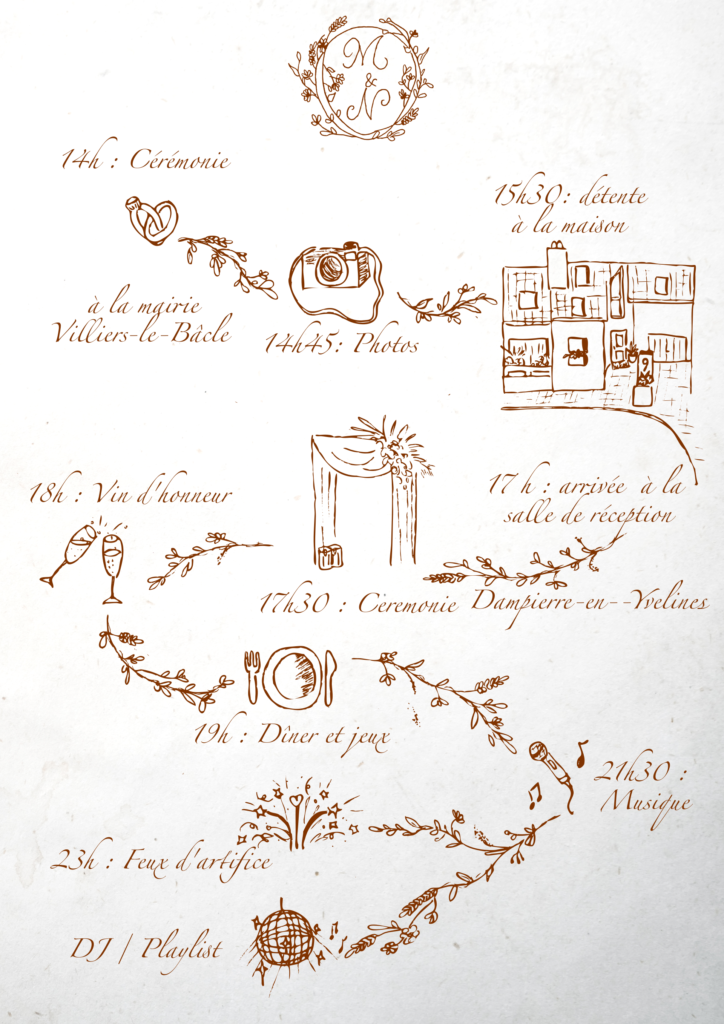 M
&
N
14h : Cérémonie
à la mairie
Villiers-le-Bâcle
14h45: Photos
15h30: détente
à la maison
9
17 h : arrivée à la
salle de réception
Dampierre-en--Yvelines
17h30 : Ceremonie
18h : Vin d'honneur
19h : Dîner et jeux
21h30 :
Musique
23h : Feux d'artifice
DJ | Playlist